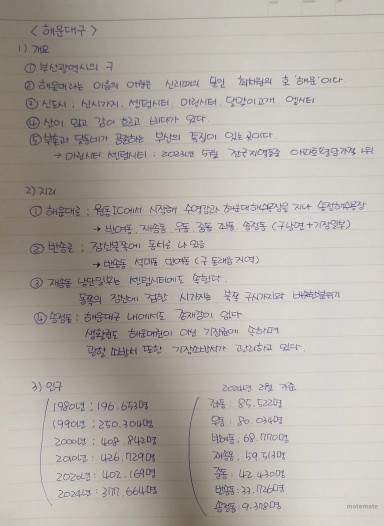 < 해운대구 >
1) 개요
① 부산광역시의 구
② 해운대라는 이름의 어원은 신라때의 문인 최치원의 호 '해운'이다.
③ 신도시, 신시가지, 센텀시티, 마린시티, 달맞이고개, 엘시티
④ 산이 있고 강이 흐르고 바다가 있다.
⑤ 부촌과 달동네가 공존하는 부산의 특징이 있는 곳이다.
→ 마린시티 센텀시티 : 2023년 5월 전국지역별 아파트평당가격
2) 지리
① 해운대로 : 원동IC에서 시작해 수영강과 해운대해수욕장을 지나 송정해수욕장
→ 반여동, 재송동, 우동, 중동, 좌동, 송정동 (구남면+기장일부)
② 반송로 : 장산북쪽에 동서로 나 있음
→ 반송동 석대동 반여동 (구 동래읍 지역)
③ 재송동 남단일부는 센텀시티에도 속한다.
동쪽의 장산에 접한 시가지는 북쪽 구시가지와
④ 송정동 : 해운대구 내에서도 존재감이 없다
생활권도 해운대권이 아닌 기장권에 속하며
관할 소방서 또한 기장소방서가 관리하고 있다.
3) 인구
1980년 : 196.653명
1990년 : 250.304명
2000년 : 408.842명
2010년 : 426.729명
2020년 : 402.169명
2024년 : 377.664명
2024년 2월 기준
좌동 : 85.522명
우동 : 80.034명
반여동 : 68.770명
재송동 : 59.513명
중동 : 42.430명
반송동 : 33.726명
송정동 : 9.378명
motemote